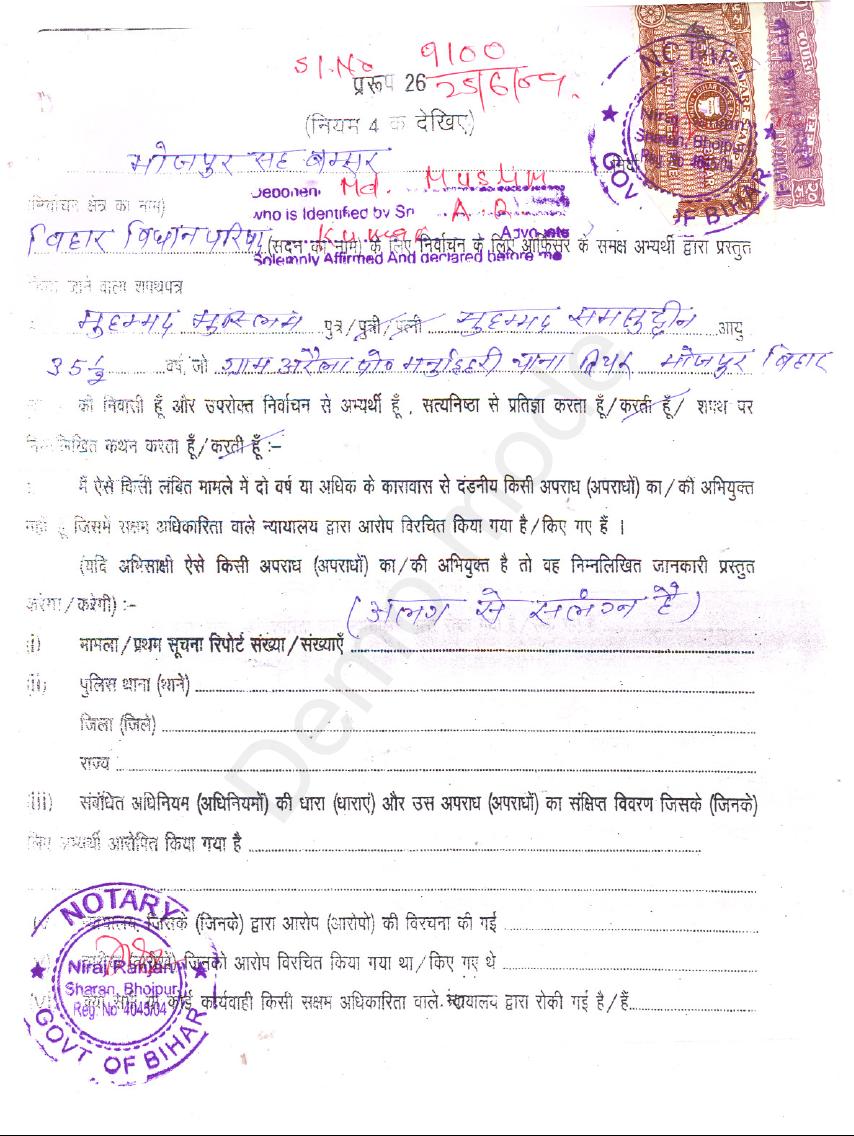 Sl. No 9100
प्ररूप 26 25/6/09.
(नियम 4 क देखिए)
भोजपुर सह बक्सर
(निर्वाचन क्षेत्र का नाम)
Deponent Md. Muslim
who is Identified by Sri A. A.
Kumar Advocate
Solemnly Affirmed And declared before me
बिहार विधान परिषद (सदन का नाम) के लिए निर्वाचन के लिए ऑफिसर के समक्ष अभ्यर्थी द्वारा प्रस्तुत
किया जाने वाला शपथपत्र
मुहम्मद मुस्लिम पुत्र/पुत्री/पत्नी मुहम्मद समसुद्दीन आयु
35 1/2 वर्ष, जो ग्राम अरैला पो० थाना भोजपुर बिहार
का निवासी हूँ और उपरोक्त निर्वाचन से अभ्यर्थी हूँ, सत्यनिष्ठा से प्रतिज्ञा करता हूँ/करती हूँ/ शपथ पर
निम्नलिखित कथन करता हूँ/करती हूँ :-
मैं ऐसे किसी लंबित मामले में दो वर्ष या अधिक के कारावास से दंडनीय किसी अपराध (अपराधों) का/की अभियुक्त
नहीं हूँ जिसमें सक्षम अधिकारिता वाले न्यायालय द्वारा आरोप विरचित किया गया है/किए गए हैं ।
(यदि अभिसाक्षी ऐसे किसी अपराध (अपराधों) का/की अभियुक्त है तो वह निम्नलिखित जानकारी प्रस्तुत
करेगा/करेगी) :-
(अलग से सलंग्न है)
(i) मामला/प्रथम सूचना रिपोर्ट संख्या/संख्याएँ
(ii) पुलिस थाना (थाने)
जिला (जिले)
राज्य
(iii) संबंधित अधिनियम (अधिनियमों) की धारा (धाराएं) और उस अपराध (अपराधों) का संक्षिप्त विवरण जिसके (जिनके)
लिए अभ्यर्थी आरोपित किया गया है
न्यायालय, जिसके (जिनके) द्वारा आरोप (आरोपों) की विरचना की गई
जिनको आरोप विरचित किया गया था/किए गए थे
(vi) क्या सभी या कोई कार्यवाही किसी सक्षम अधिकारिता वाले न्यायालय द्वारा रोकी गई है/हैं
NOTARY
Niraj Ranjan
Sharan, Bhojpur
Reg. No 4045/04
GOVT OF BIHAR
NOTARY
Niraj Ranjan
Sharan, Bhojpur
Reg. No 4045/04
GOVT OF BIHAR
Demo mode